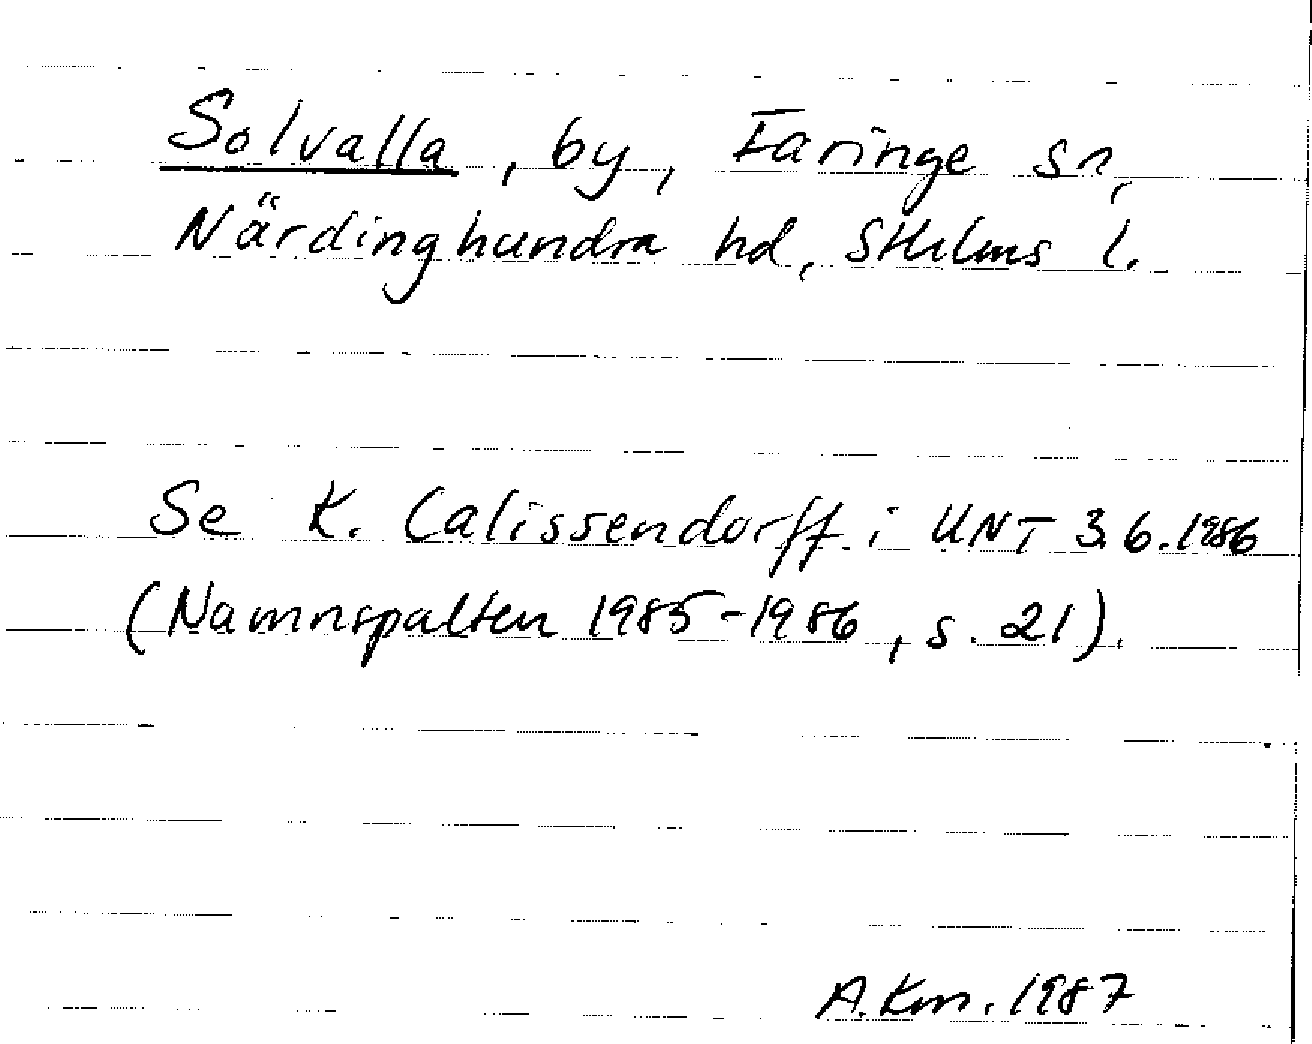 Solvalla, by, Faringe sn,
Närdinghundra hd, Sthlms l.
Se K. Calissendorff i UNT 3.6.1986
(Namnspalten 1985-1986, s. 21).
A.Km. 1987